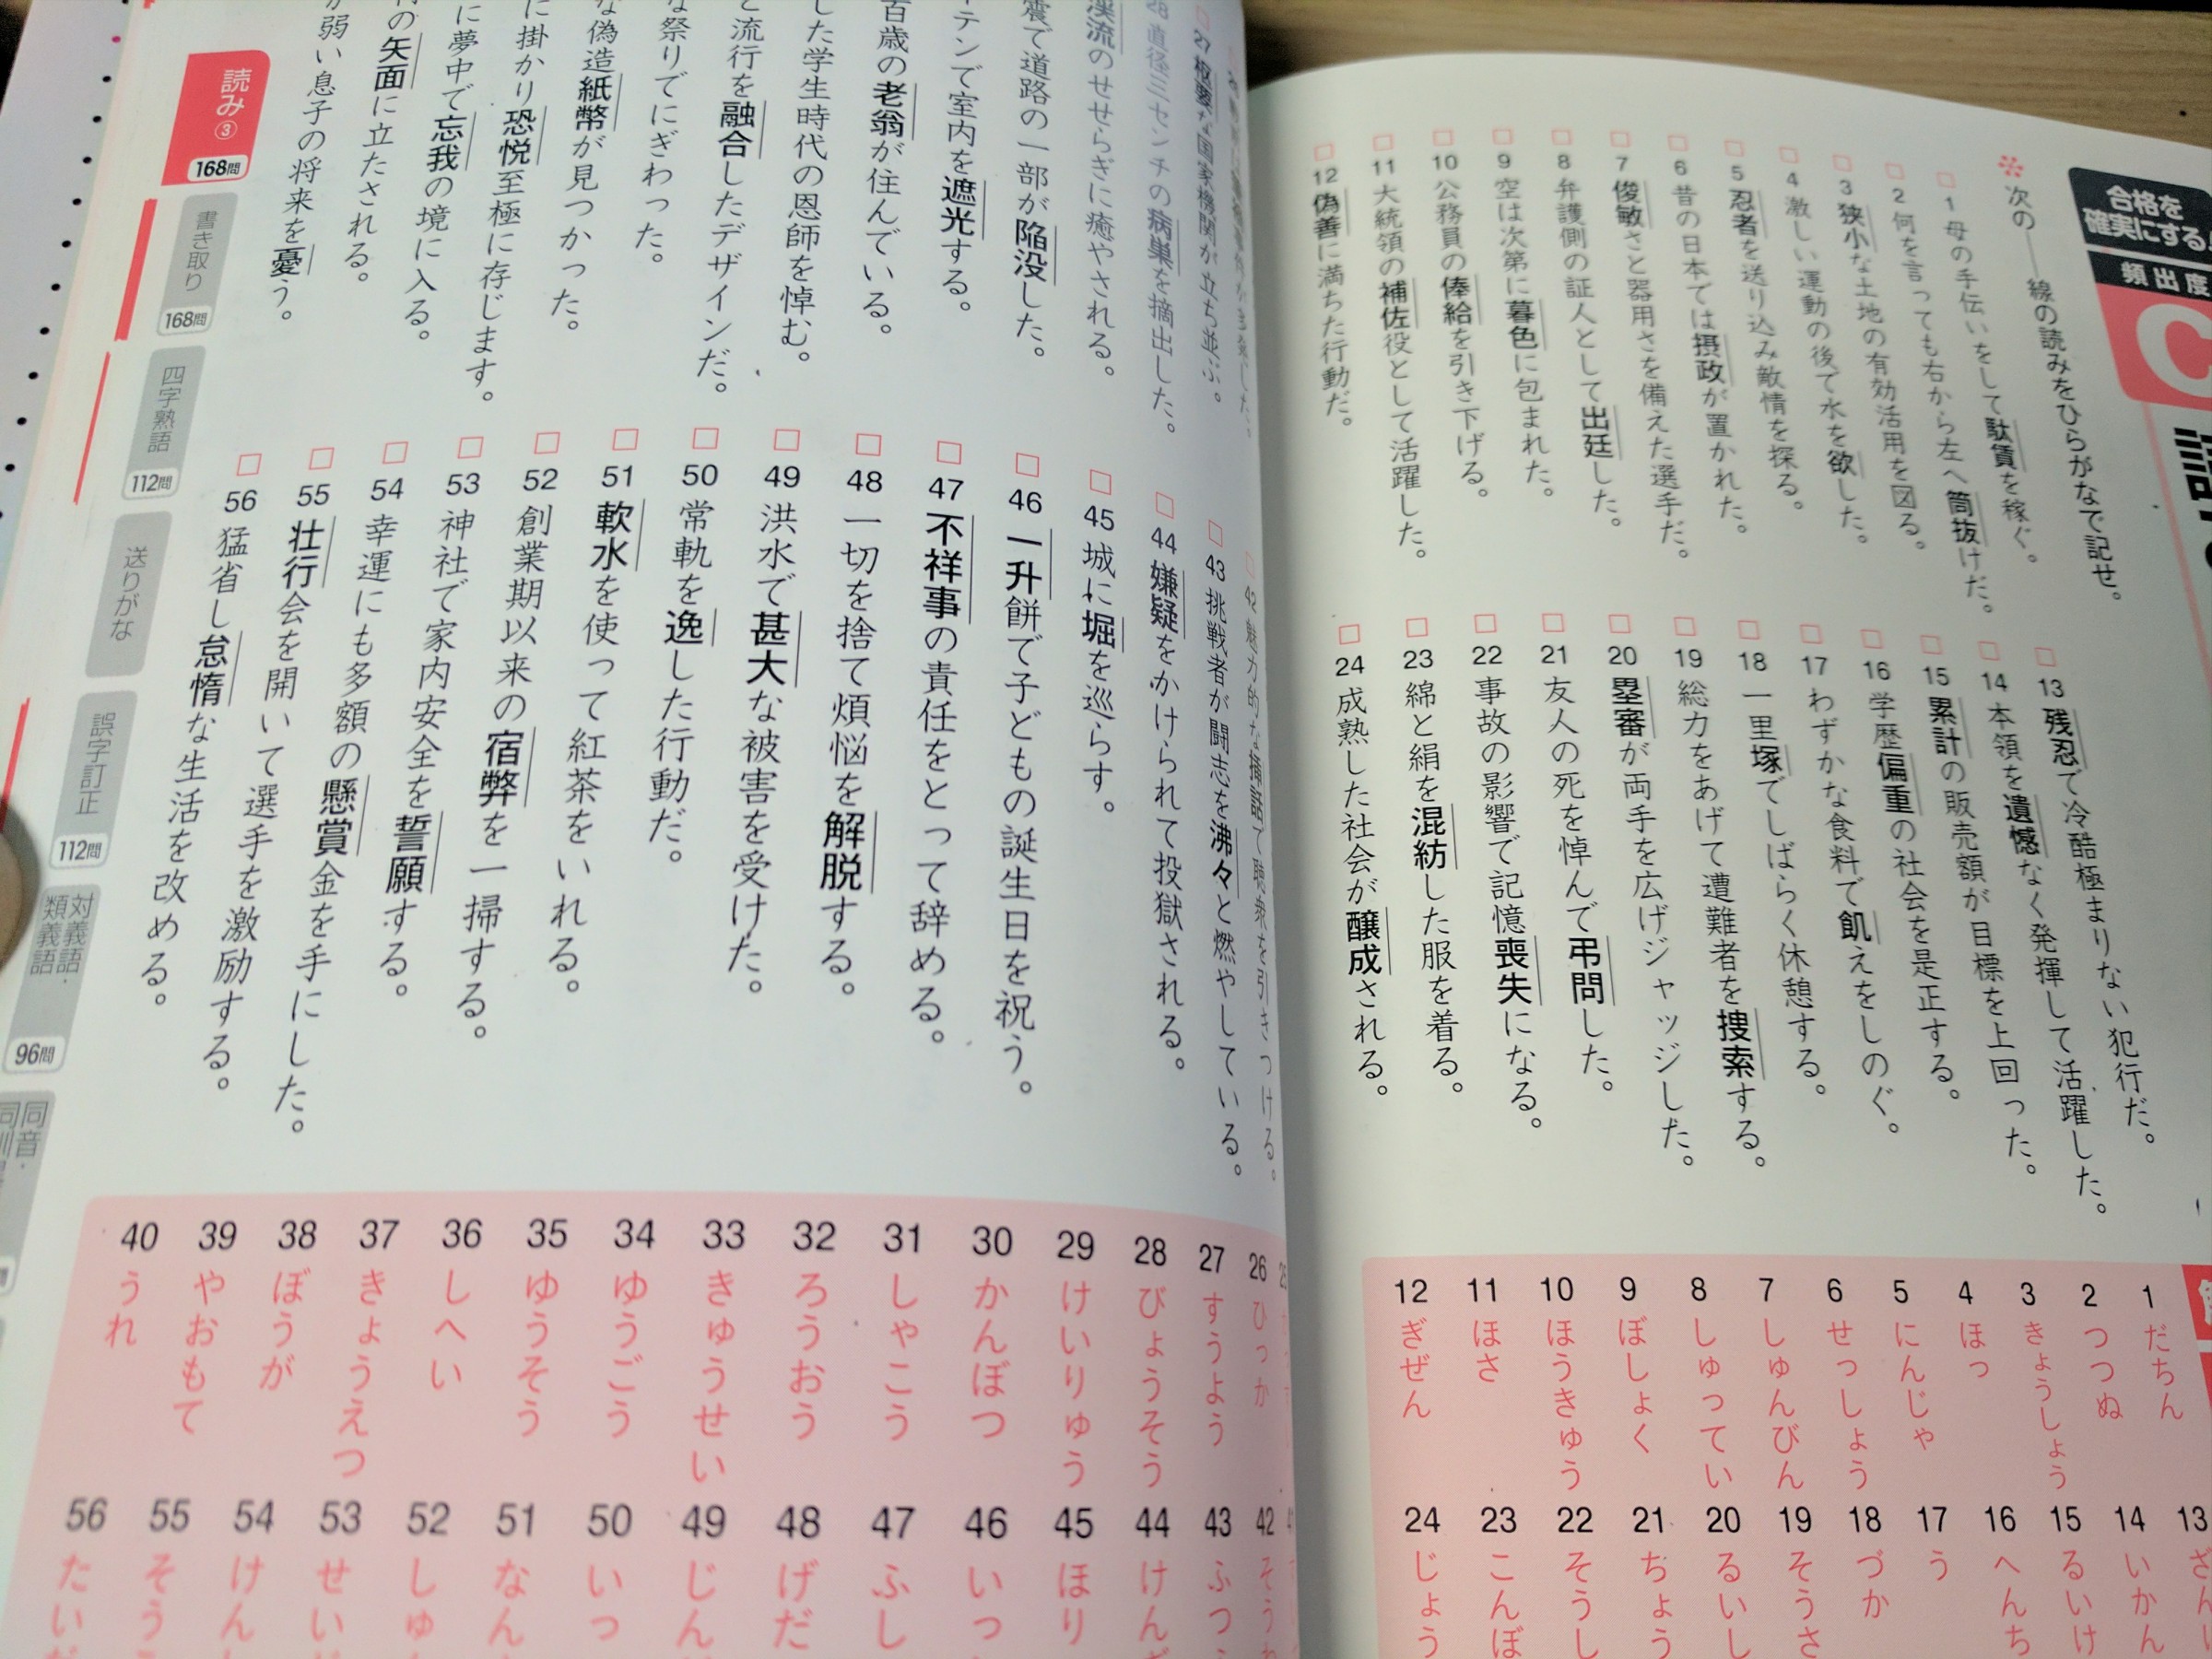 合格を
確実にする
頻出度
C
次の——線の読みをひらがなで記せ。
1 母の手伝いをして駄賃を稼ぐ。
2 何を言っても右から左へ筒抜けだ。
3 狭小な土地の有効活用を図る。
4 激しい運動の後で水を欲した。
5 忍者を送り込み敵情を探る。
6 昔の日本では摂政が置かれた。
7 俊敏さと器用さを備えた選手だ。
8 弁護側の証人として出廷した。
9 空は次第に暮色に包まれた。
10 公務員の俸給を引き下げる。
11 大統領の補佐役として活躍した。
12 偽善に満ちた行動だ。
13 残忍で冷酷極まりない犯行だ。
14 本領を遺憾なく発揮して活躍した。
15 累計の販売額が目標を上回った。
16 学歴偏重の社会を是正する。
17 わずかな食料で飢えをしのぐ。
18 一里塚でしばらく休憩する。
19 総力をあげて遭難者を捜索する。
20 塁審が両手を広げジャッジした。
21 友人の死を悼んで弔問した。
22 事故の影響で記憶喪失になる。
23 綿と絹を混紡した服を着る。
24 成熟した社会が醸成される。
1 だちん
2 つつぬ
3 きょうしょう
4 ほっ
5 にんじゃ
6 せっしょう
7 しゅんびん
8 しゅってい
9 ぼしょく
10 ほうきゅう
11 ほさ
12 ぎぜん
13 ざん
14 いかん
15 るいけ
16 へんち
17 う
18 づか
19 そうさ
20 るいし
21 ちょう
22 そうし
23 こんぼ
24 じょう
27 枢要な国家機関が立ち並ぶ。
28 直径三センチの病巣を摘出した。
渓流のせせらぎに癒やされる。
震で道路の一部が陥没した。
ーテンで室内を遮光する。
百歳の老翁が住んでいる。
した学生時代の恩師を悼む。
と流行を融合したデザインだ。
な祭りでにぎわった。
な偽造紙幣が見つかった。
に掛かり恐悦至極に存じます。
に夢中で忘我の境に入る。
の矢面に立たされる。
が弱い息子の将来を憂う。
42 魅力的な挿話で聴衆を引きつける。
43 挑戦者が闘志を沸々と燃やしている。
44 嫌疑をかけられて投獄される。
45 城に堀を巡らす。
46 一升餅で子どもの誕生日を祝う。
47 不祥事の責任をとって辞める。
48 一切を捨て煩悩を解脱する。
49 洪水で甚大な被害を受けた。
50 常軌を逸した行動だ。
51 軟水を使って紅茶をいれる。
52 創業期以来の宿弊を一掃する。
53 神社で家内安全を誓願する。
54 幸運にも多額の懸賞金を手にした。
55 壮行会を開いて選手を激励する。
56 猛省し怠惰な生活を改める。
26 ひっか
27 すうよう
28 びょうそう
29 けいりゅう
30 かんぼつ
31 しゃこう
32 ろうおう
33 きゅうせい
34 ゆうごう
35 ゆうそう
36 しへい
37 きょうえつ
38 ぼうが
39 やおもて
40 うれ
42 そうわ
43 ふつ
44 けんぎ
45 ほり
46 いっ
47 ふし
48 げだ
49 じん
50 いっ
51 なん
52 しゅ
53 せい
54 けん
55 そう
56 たい
読み③
168問
書き取り
168問
四字熟語
112問
送りがな
誤字訂正
112問
対義語・
類義語
96問
同音・